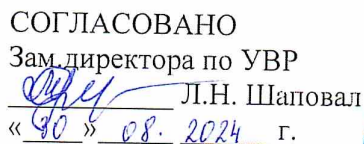 СОГЛАСОВАНО
Зам.директора по УВР
Л.Н. Шаповал
«30» 08. 2024 г.